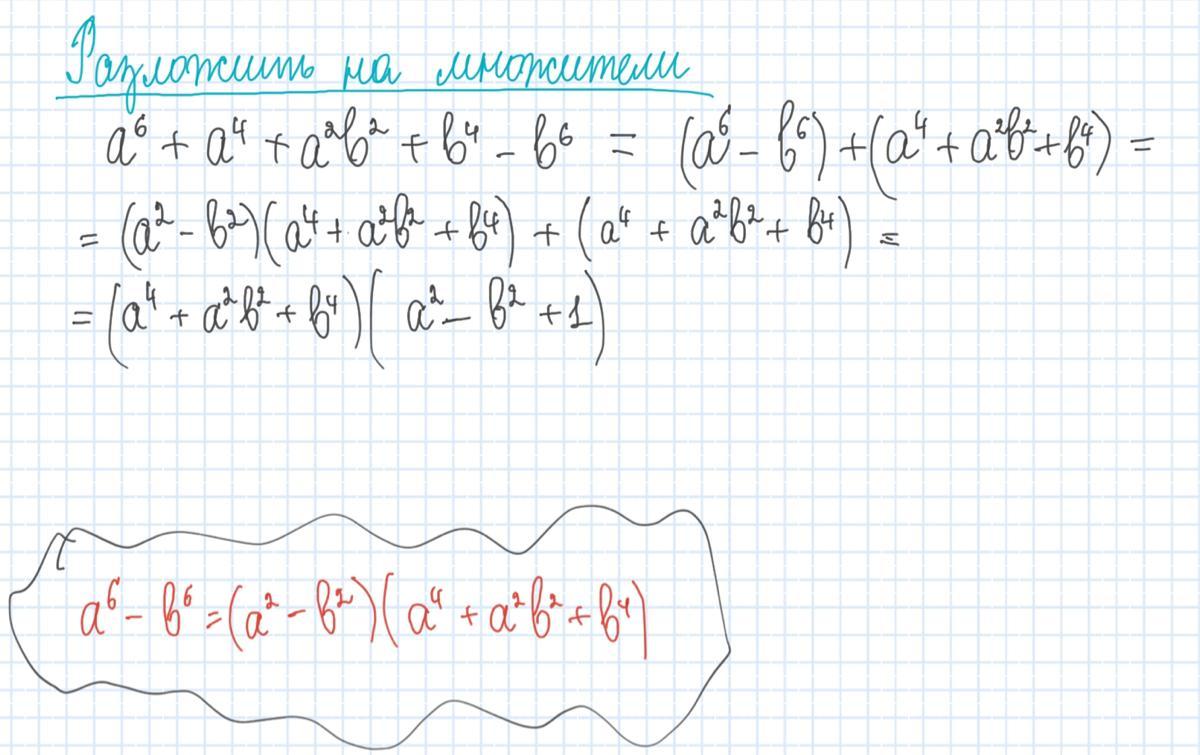 Разложить на множители
a⁶ + a⁴ + a²b² + b⁴ - b⁶ = (a⁶ - b⁶) + (a⁴ + a²b² + b⁴) =
= (a² - b²)(a⁴ + a²b² + b⁴) + (a⁴ + a²b² + b⁴) =
= (a⁴ + a²b² + b⁴)(a² - b² + 1)
a⁶ - b⁶ = (a² - b²)(a⁴ + a²b² + b⁴)